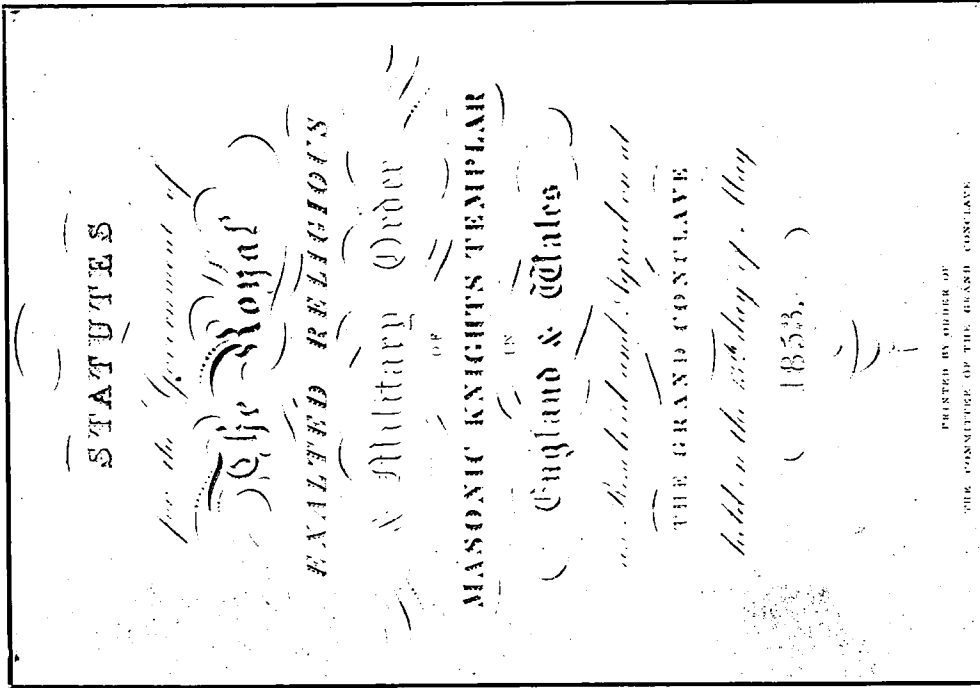 STATUTES
for the Government of
The Royal
EXALTED RELIGIOUS
& Military Order
OF
MASONIC KNIGHTS TEMPLAR
IN
England & Wales
as Resolved and Agreed on at
THE GRAND CONCLAVE
held on the day of May
1853.
PRINTED BY ORDER OF
THE COMMITTEE OF THE GRAND CONCLAVE